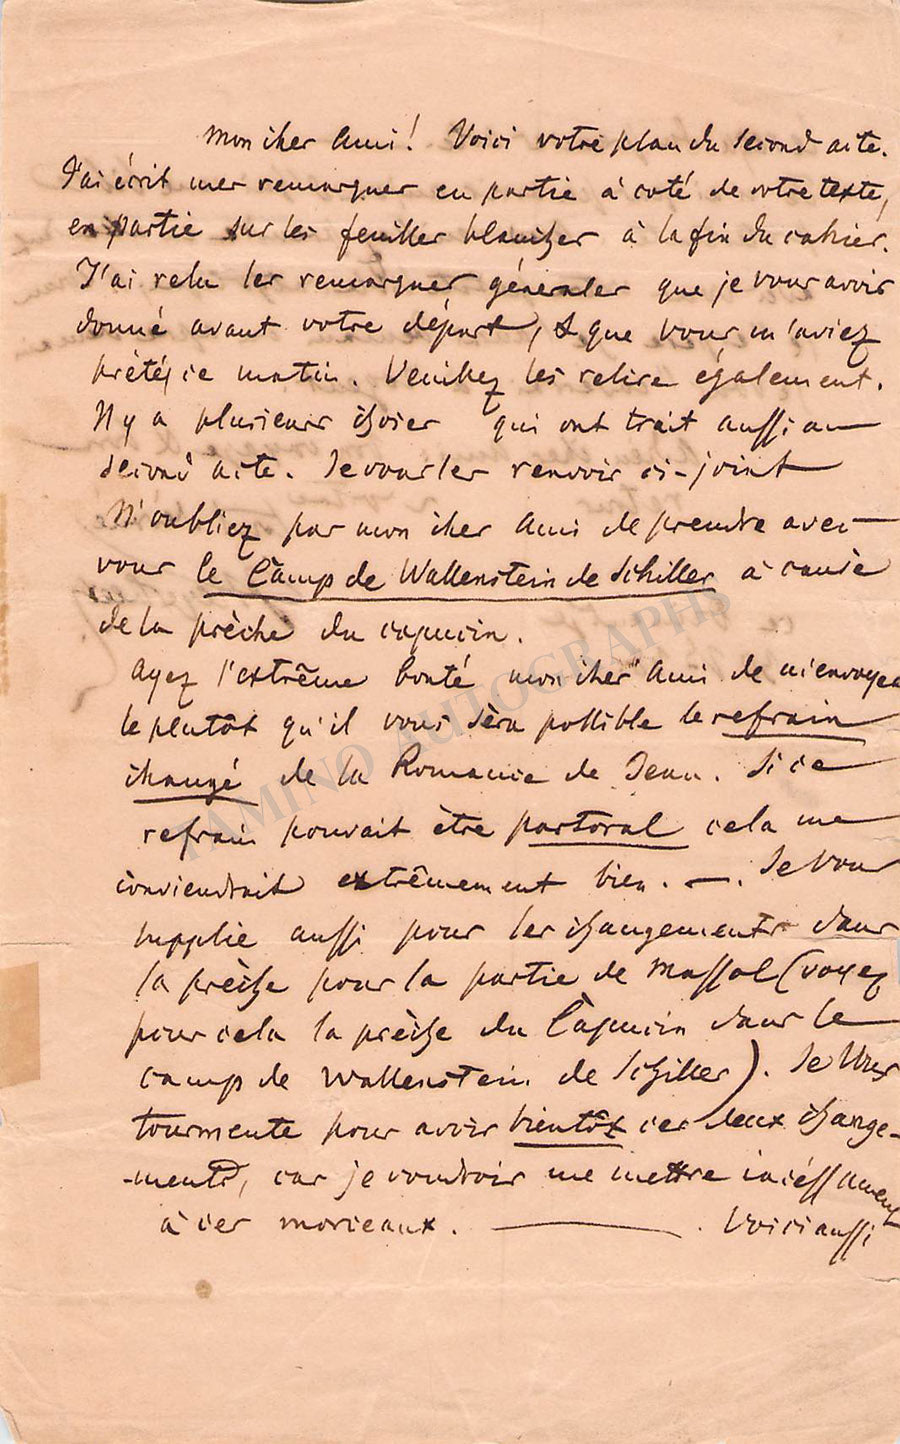 Mon cher Ami! Voici votre plan du second acte.
J'ai écrit mes remarques en partie à coté de votre texte,
en partie sur les feuilles blanches à la fin du cahier.
J'ai relu les remarques générales que je vous avois
donné avant votre départ, & que vous m'aviez
prêté ce matin. Veuillez les relire également.
Il y a plusieurs choses qui ont trait aussi au
second acte. Je vous les renvois ci-joint
N'oubliez pas mon cher Ami de prendre avec
vous le Camp de Wallenstein de Schiller à cause
de la prèche du capucin.
Ayez l'extrême bonté mon cher Ami de m'envoyer
le plutôt qu'il vous sera possible le refrain
changé de la Romance de Jean. Si ce
refrain pouvait être pastoral cela me
conviendrait extrêmement bien. —. Je vous
supplie aussi pour les changements dans
la prèche pour la partie de Massol (voyez
pour cela la prèche du Capucin dans le
camp de Wallenstein de Schiller). Je vous
tourmente pour avoir bientôt ces deux change-
-ments, car je voudrois me mettre incessament
à ces morceaux. — . Voici aussi
TAMINO AUTOGRAPHS